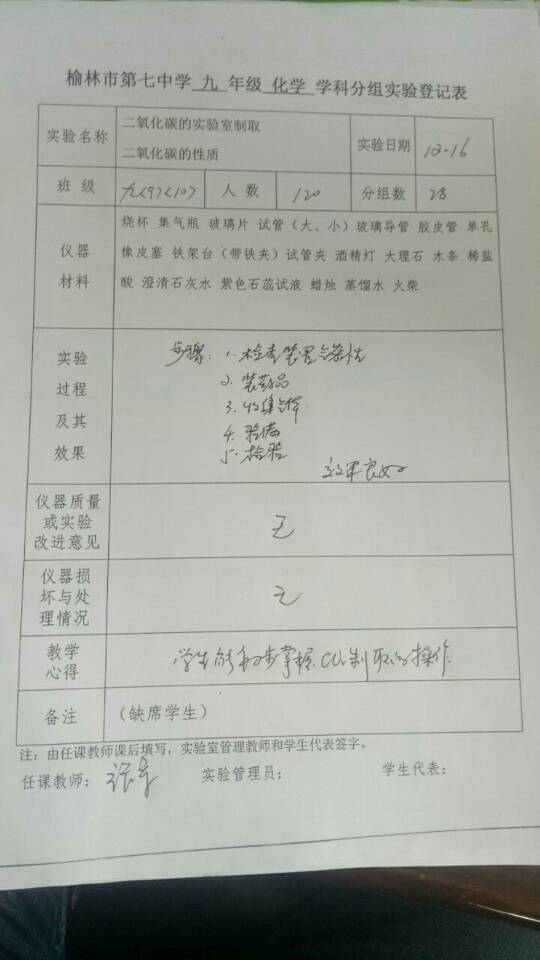 榆林市第七中学 九 年级 化学 学科分组实验登记表
实验名称
二氧化碳的实验室制取
二氧化碳的性质
实验日期
12-16
班 级
九(9)(10)
人 数
120
分组数
28
仪器
材料
烧杯 集气瓶 玻璃片 试管（大、小）玻璃导管 胶皮管 单孔
橡皮塞 铁架台（带铁夹）试管夹 酒精灯 大理石 木条 稀盐
酸 澄清石灰水 紫色石蕊试液 蜡烛 蒸馏水 火柴
实验
过程
及其
效果
步骤：1. 检查装置气密性
2. 装药品
3. 收集气体
4. 验满
5. 检验
效果良好
仪器质量
或实验
改进意见
无
仪器损
坏与处
理情况
无
教学
心得
学生能初步掌握CO₂制取的操作
备注
（缺席学生）
注：由任课教师课后填写，实验室管理教师和学生代表签字。
任课教师：
实验管理员：
学生代表：